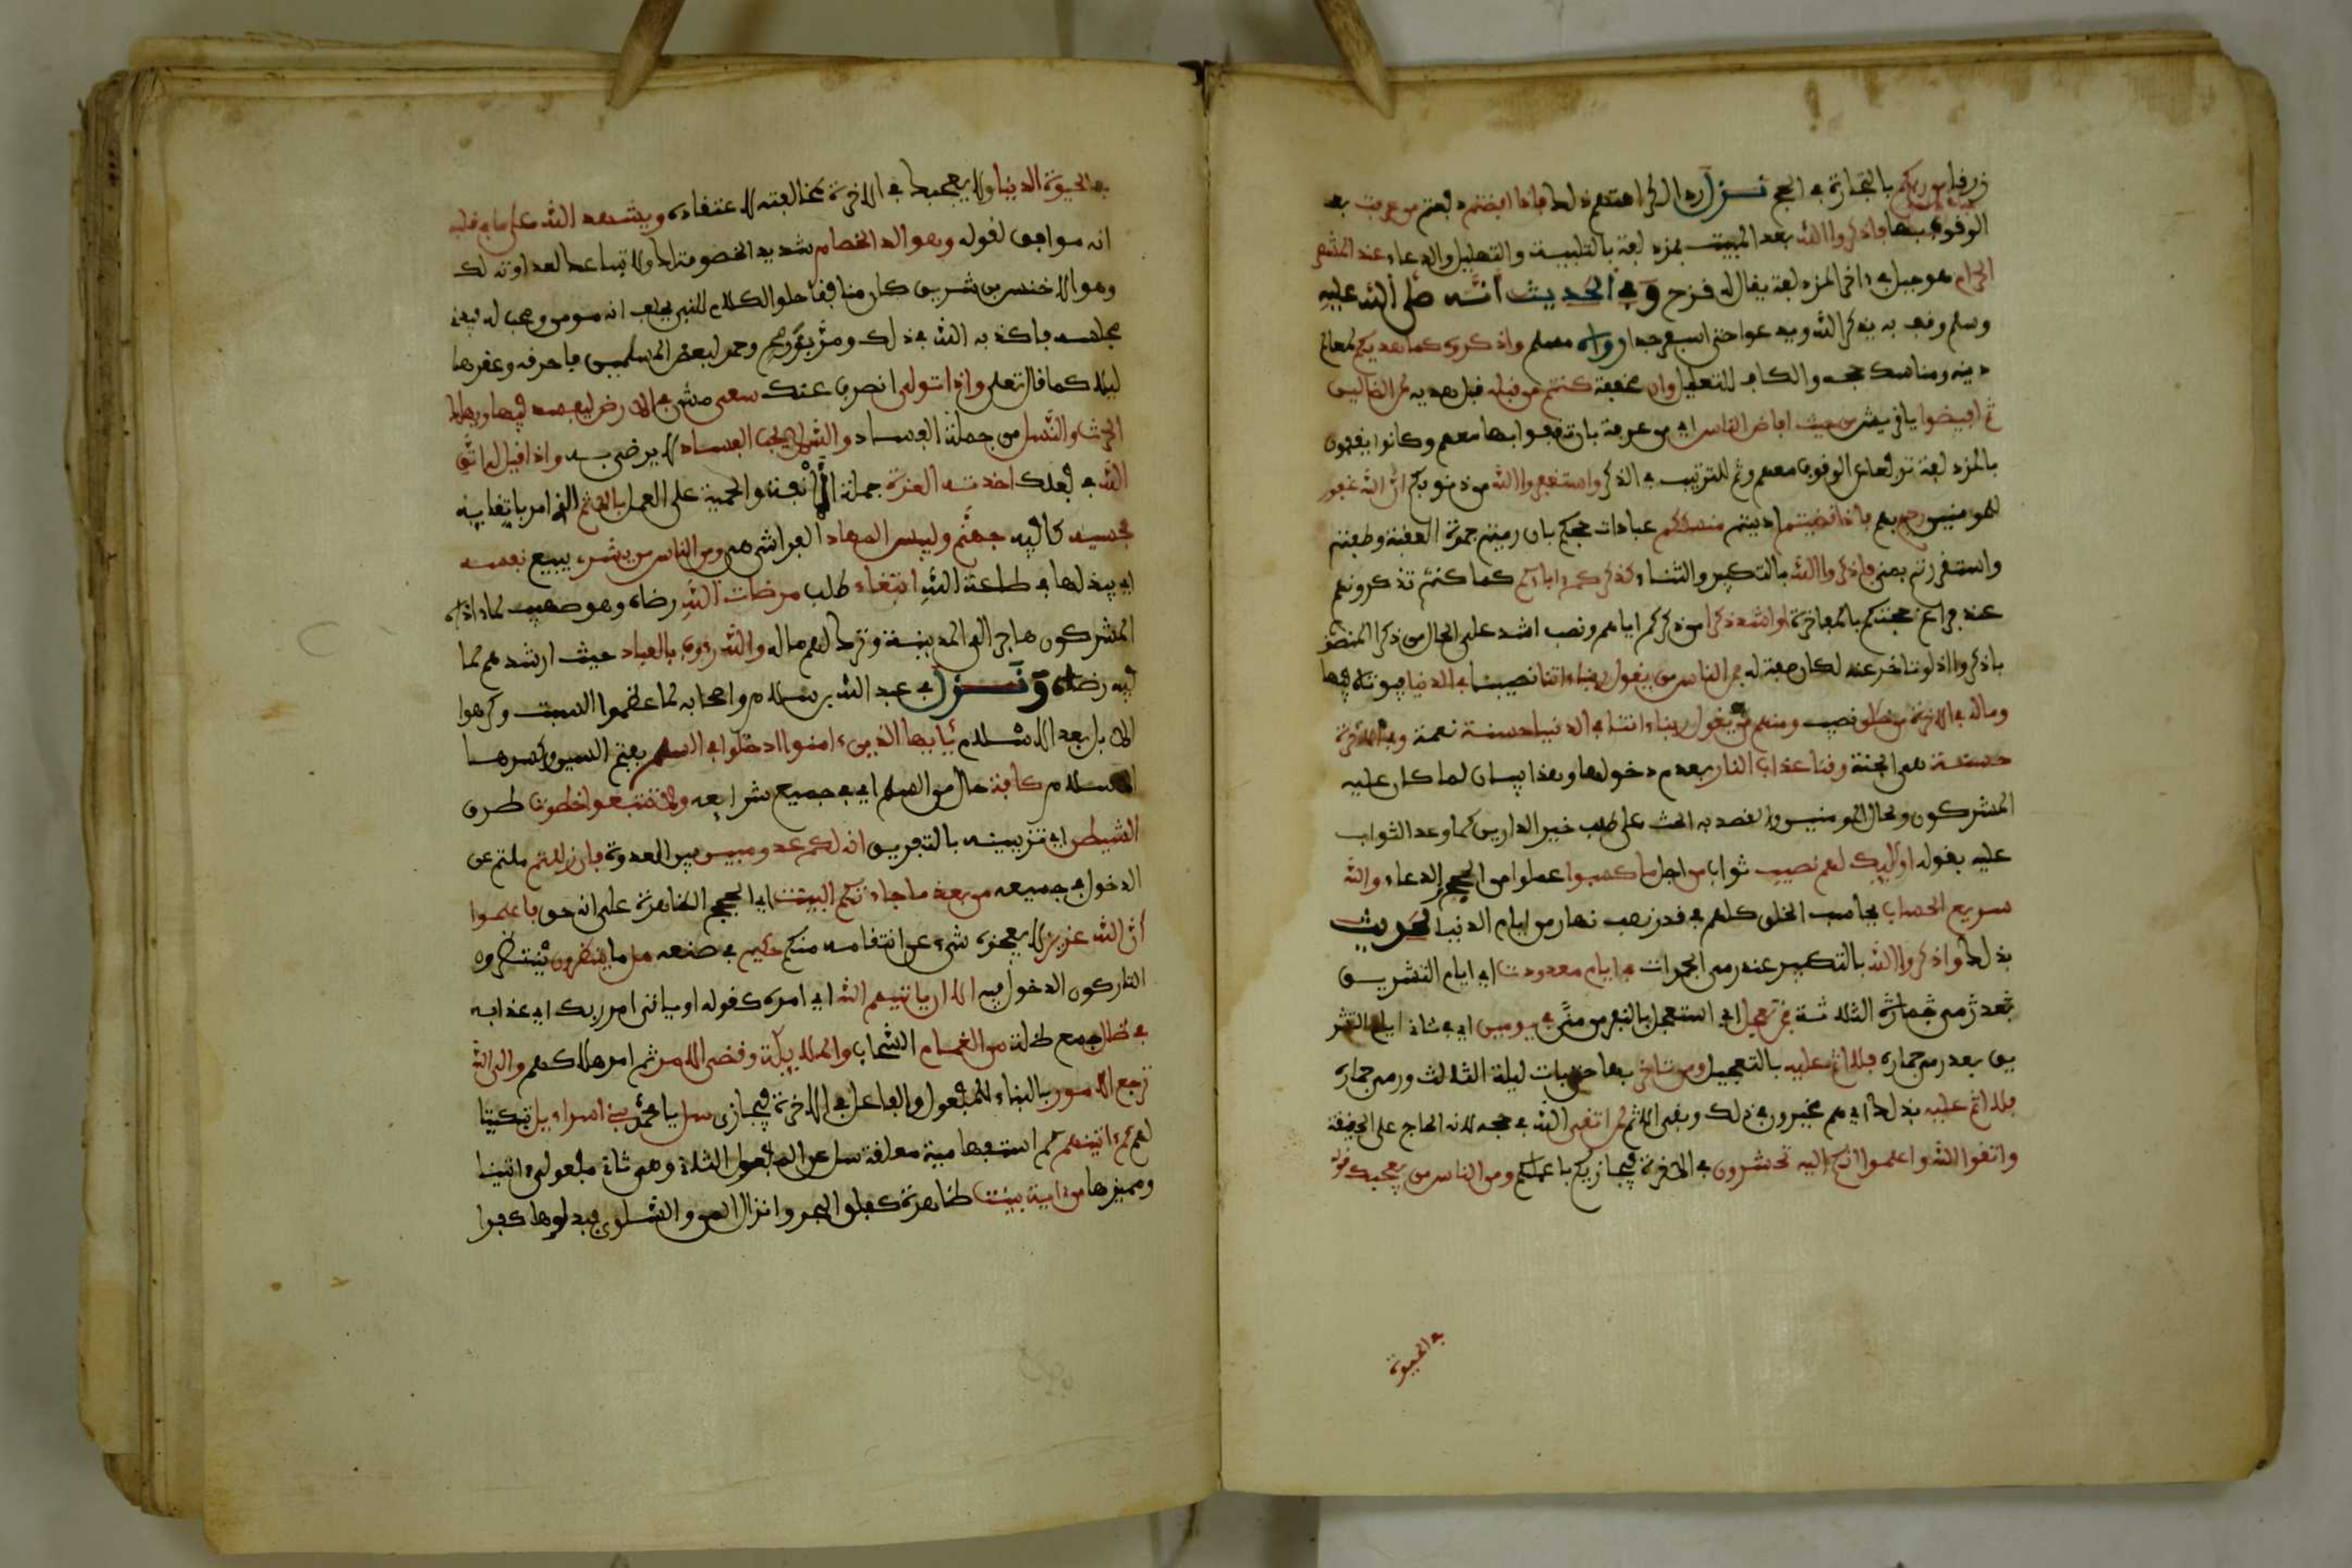 رزقا من ربكم بالتجارة في الحج نزل ردا لكراهتهم ذلك فاذا افضتم دفعتم من عرفت بعد
الوقوف بها فاذكروا الله بعد المبيت بمزدلفة بالتلبية والتهليل والدعاء عند المشعر
الحرام هو جبل في ءاخر المزدلفة يقال له قزح وفي الحديث أنه صلى الله عليه
وسلم وقف به يذكر الله ويدعوا حتى اسفر جدا رواه مسلم واذكروه كما هديكم لمعالم
دينه ومناسك حجه والكاف للتعليل وان مخففة كنتم من قبله قبل هديه لمن الضالين
ثم افيضوا يا قريش من حيث افاض الناس اي من عرفة بان تقفوا بها معهم وكانوا يقفون
بالمزدلفة ترفعا عن الوقوف معهم وثم للترتيب في الذكر واستغفروا الله من ذنوبكم ان الله غفور
للمومنين رحيم بهم فاذا قضيتم اديتم منسككم عبادات حجكم بان رميتم جمرة العقبة وطفتم
واستقررتم بمنى فاذكروا الله بالتكبير والثناء كذكركم ءاباءكم كما كنتم تذكرونهم
عند فراغ حجكم بالمفاخرة او اشد ذكرا من ذكركم اياهم ونصب اشد على الحال من ذكرا المنصوب
باذكروا اذ لو تاخر عنه لكان صفة له فمن الناس من يقول ربنا ءاتنا نصيبنا في الدنيا فيوتاه فيها
وماله في الاخرة من خلق نصيب ومنهم من يقول ربنا ءاتنا في الدنيا حسنة نعمة وفي الاخرة
حسنة هي الجنة وقنا عذاب النار بعدم دخولها وهذا بيان لما كان عليه
المشركون ولحال المومنين والقصد به الحث على طلب خير الدارين كما وعد الثواب
عليه بقوله اوليك لهم نصيب ثواب من اجل ما كسبوا عملوا من الحج والدعاء والله
سريع الحساب يحاسب الخلق كلهم في قدر نصف نهار من ايام الدنيا لحديث
بذلك واذكروا الله بالتكبير عند رمي الجمرات في ايام معدودت اي ايام التشريق
الثلاثة فمن تعجل اي استعجل بالنفر من منى في يومين اي في ثاني ايام التشر
يق بعد رمي جماره فلا اثم عليه بالتعجيل ومن تاخر بها حتى بات ليلة الثالث ورمى جماره
فلا اثم عليه بذلك اي هم مخيرون في ذلك ونفي الاثم لمن اتقى الله في حجه لانه الحاج على الحقيقة
واتقوا الله واعلموا انكم اليه تحشرون في الاخرة فيجازيكم باعملكم ومن الناس من يعجبك قوله
في الحيوة
في الحيوة الدنيا ولا يعجبك في الاخرة لمخالفته لاعتقاده ويشهد الله على ما في قلبه
انه موافق لقوله وهو الد الخصام شديد الخصومة لك ولاتباعك لعداوته لك
وهو الاخنس بن شريق كان منافقا حلو الكلام للنبي يحلف انه مومن ومحب له فيدني
مجلسه فاكذبه الله في ذلك ومر بزرع وحمر لبعض المسلمين فاحرقه وعقرها
ليلا كما قال تعلى واذا تولى انصرف عنك سعى مشى في الارض ليفسد فيها ويهلك
الحرث والنسل من جملة الفساد والله لا يحب الفساد لا يرضى به واذا قيل له اتق
الله في فعلك اخذته العزة حملته الانفة والحمية على العمل بالاثم الذي امر باتقايه
فحسبه كافيه جهنم ولبيس المهاد الفراش هي ومن الناس من يشري يبيع نفسه
اي يبذلها في طاعة الله ابتغاء طلب مرضات الله رضاه وهو صهيب لما اذاه
المشركون هاجر الى المدينة وترك لهم ماله والله رءوف بالعباد حيث ارشدهم لما
فيه رضاه ونزل في عبد الله بن سلام واصحابه لما عظموا السبت وكرهوا
الابل بعد الاسلام يأيها الذين ءامنوا ادخلوا في السلم بفتح السين وكسرها
الاسلام كافة حال من السلم اي في جميع شرايعه ولا تتبعوا خطوت طرق
الشيطن اي تزيينه بالتفريق انه لكم عدو مبين بين العدوة فان زللتم ملتم عن
الدخول في جميعه من بعد ما جاءتكم البينت اي الحجج الظاهرة على انه حق فاعلموا
أن الله عزيز لا يعجزه شيء عن انتقامه منكم حكيم في صنعه هل ما ينظرون ينتظروه
التاركون الدخول فيه الا ان ياتيهم الله اي امره كقوله او ياتي امر ربك اي عذابه
في ظلل جمع ظلة من الغمام السحاب والملايكة وقضي الامر تم امر هلاكهم والى الله
ترجع الامور بالبناء للمفعول والفاعل في الاخرة فيجازي سل يا محمد بني اسراءيل تبكيتا
لهم كم ءاتينهم كم استفهامية معلقة سل عن المفعول الثاني وهي ثاني مفعولي ءاتينا
ومميزها من ءاية بينة ظاهرة كفلق البحر وانزال المن والسلوى فبدلوها كفرا